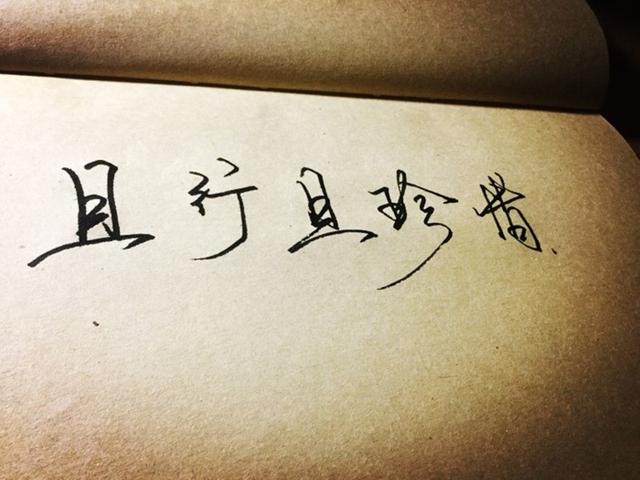 且行且珍惜.